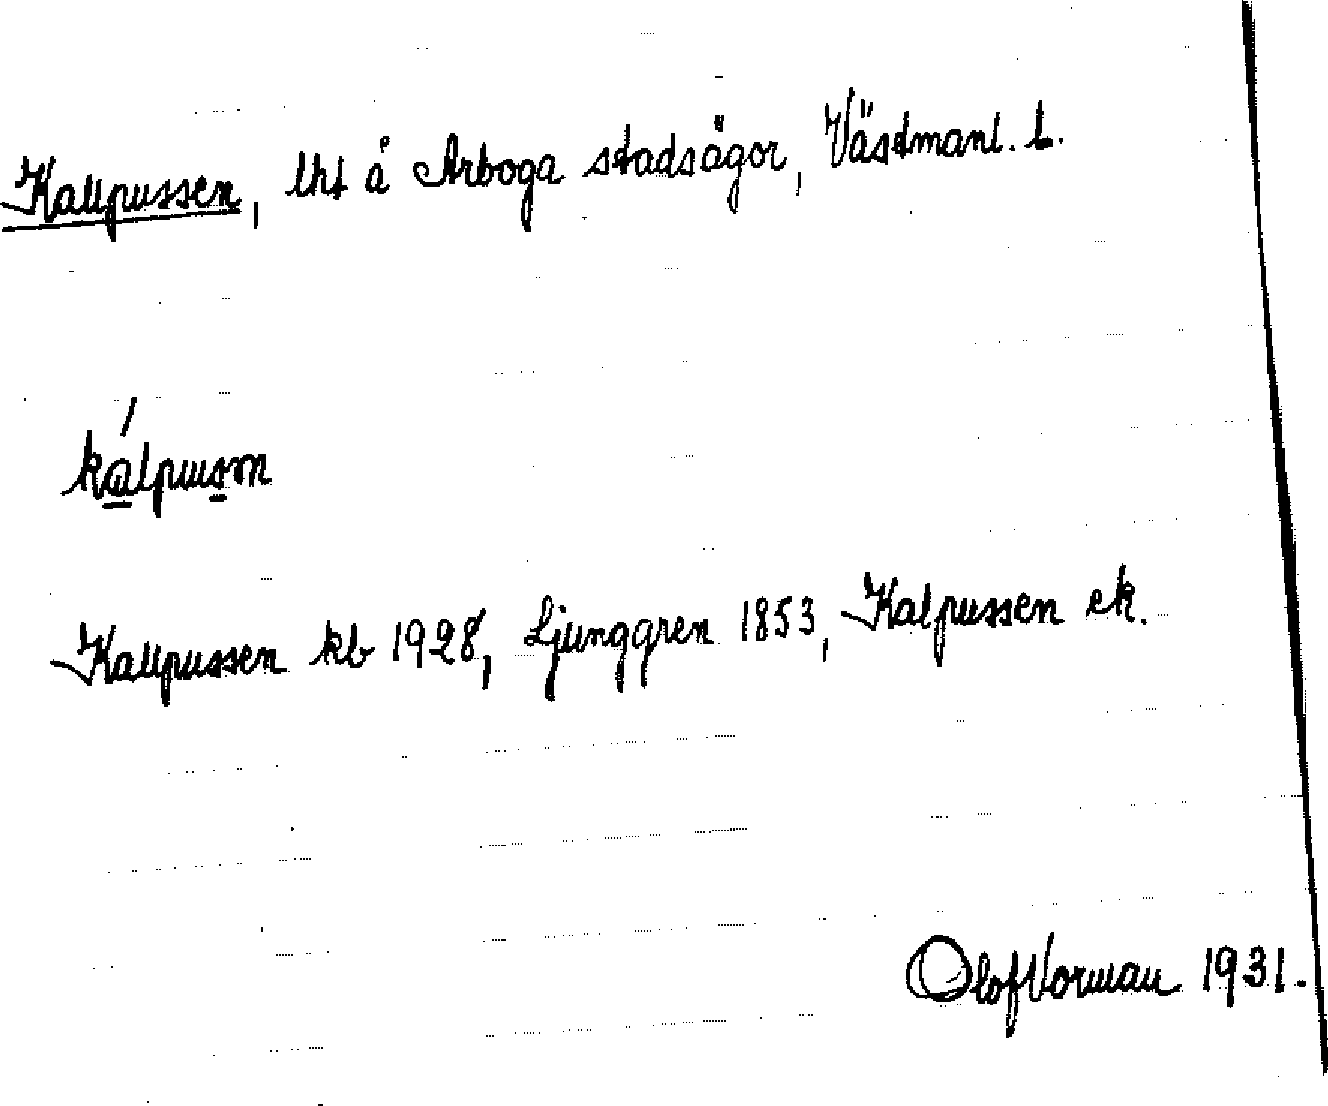 Kallpussen, lht å Arboga stadsägor, Västmanl. L.
Kallpussen kb 1928, Ljunggren 1853, Kalpussen ek.
Olof Vorman 1931.